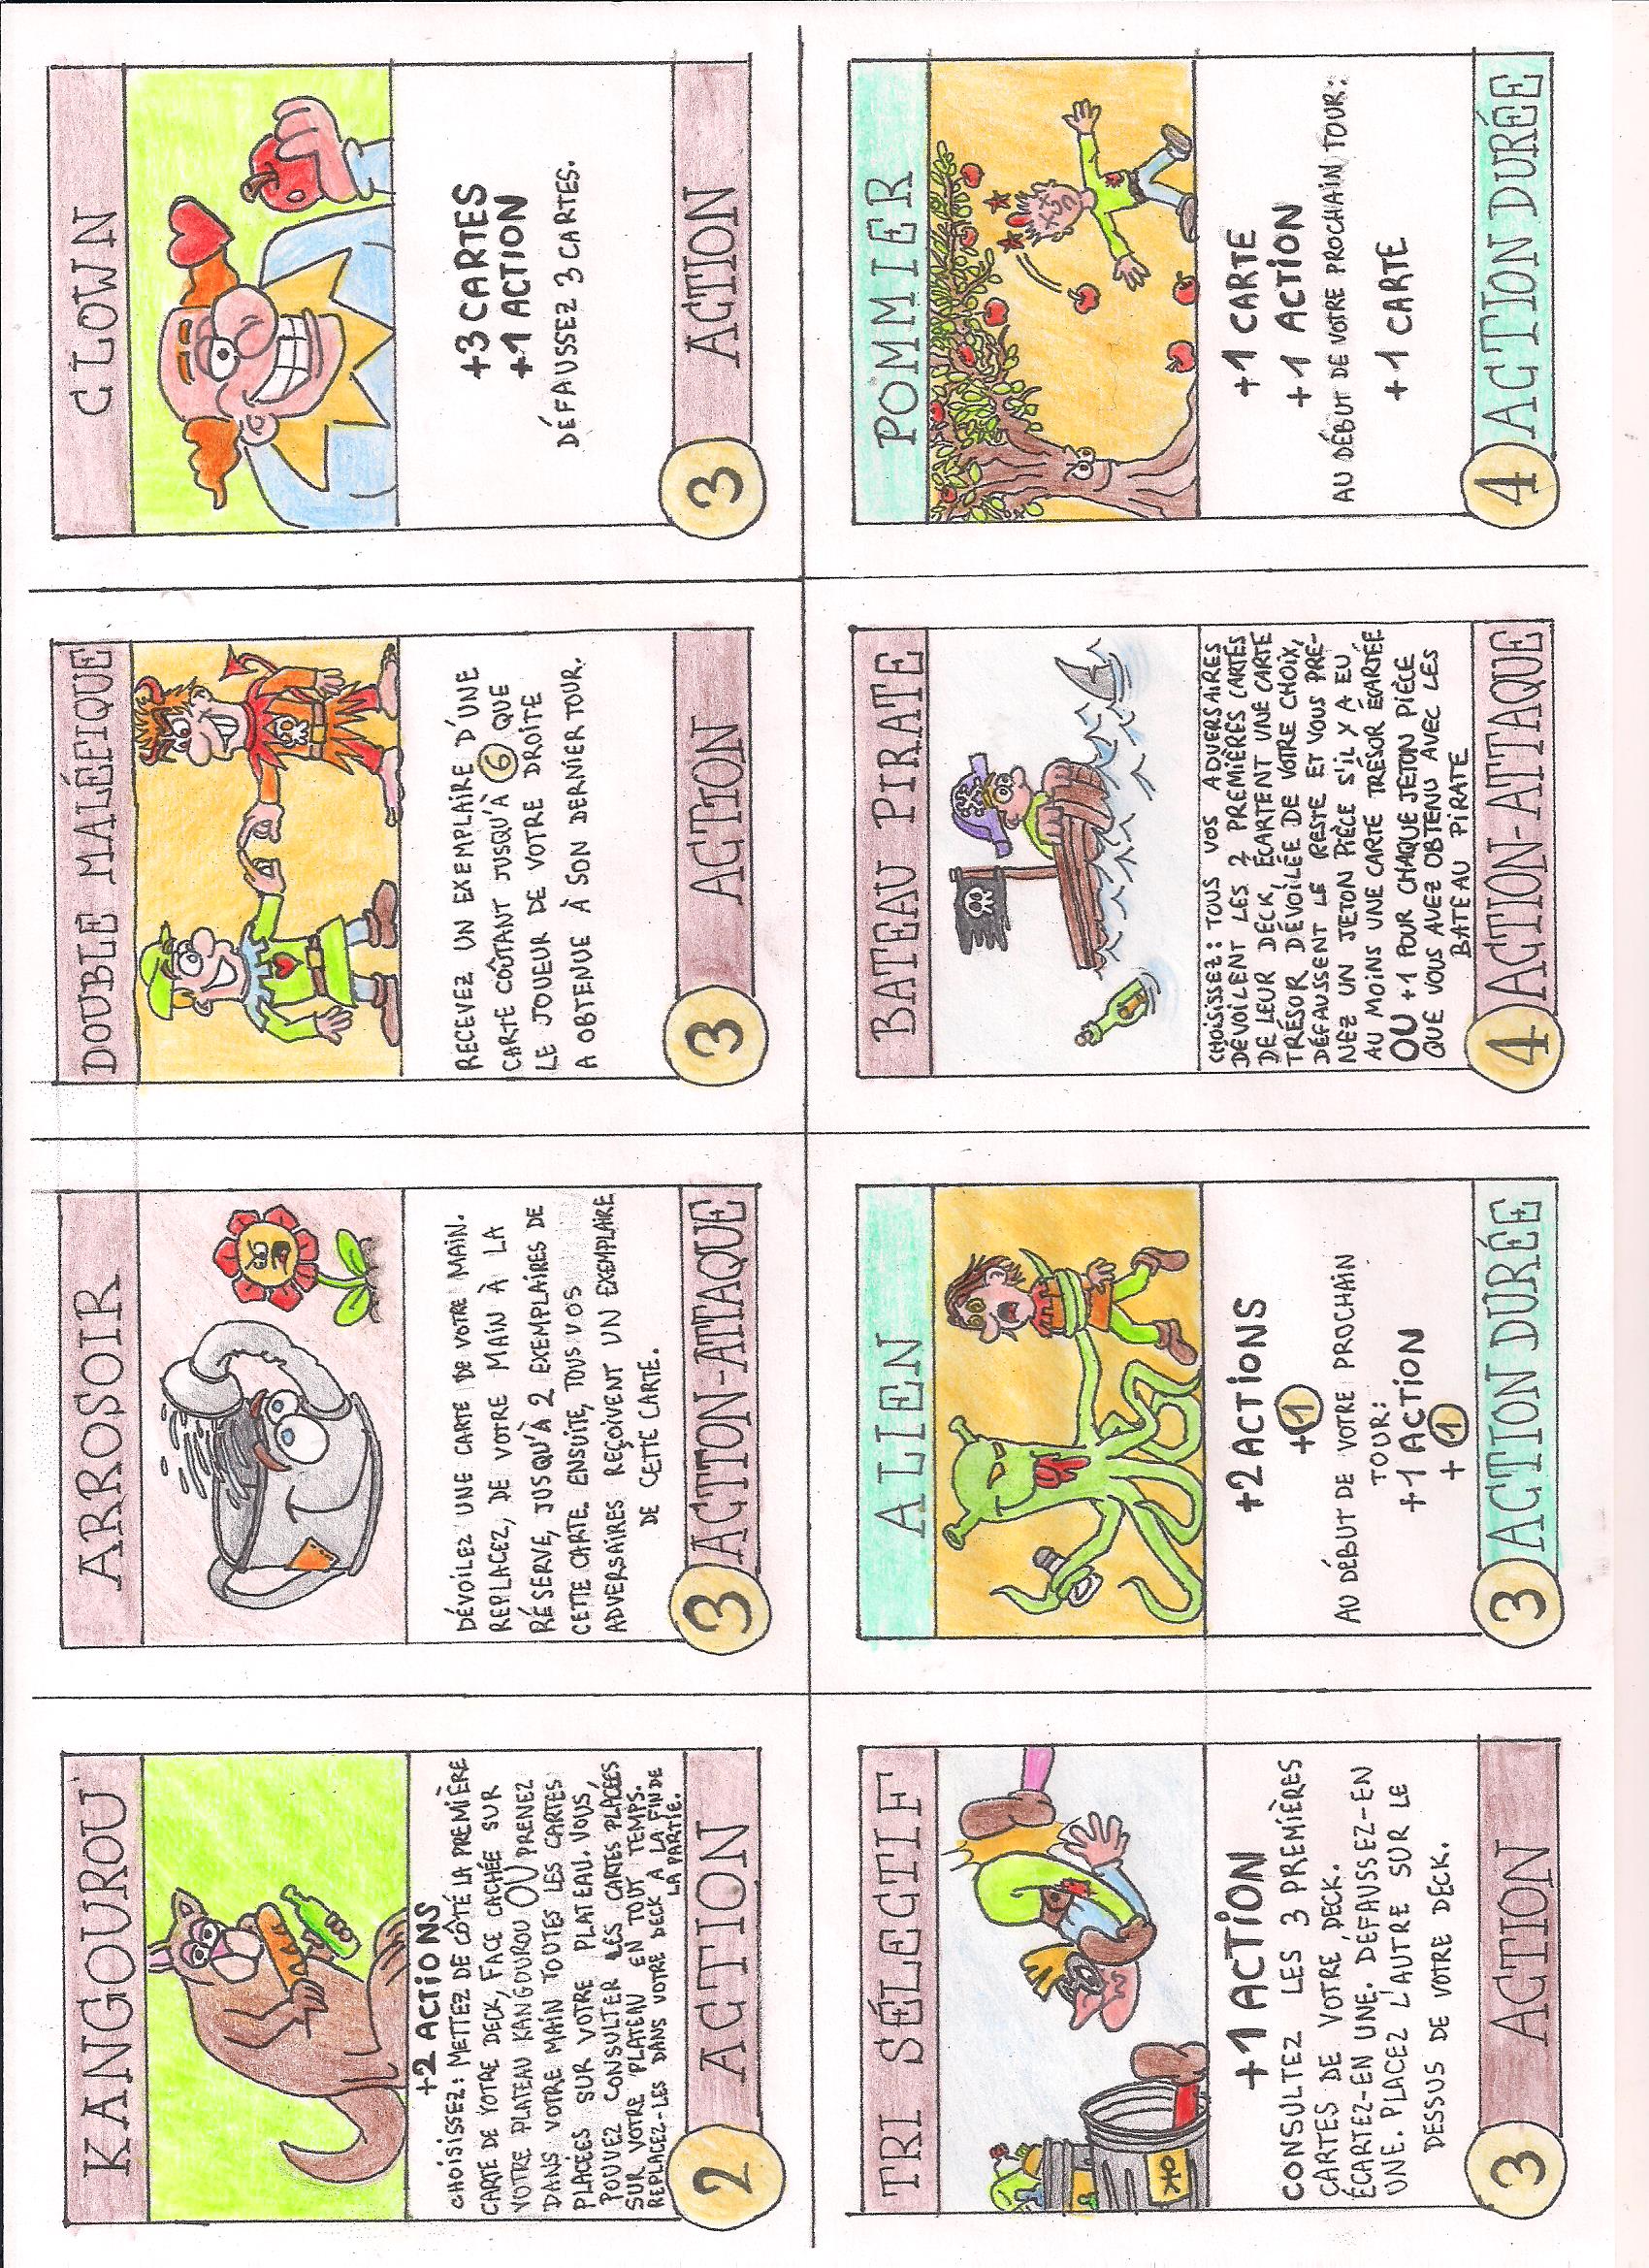 KANGOUROU
+2 ACTIONS
CHOISISSEZ: METTEZ DE CÔTÉ LA PREMIÈRE
CARTE DE VOTRE DECK, FACE CACHÉE SUR
VOTRE PLATEAU KANGOUROU OU PRENEZ
DANS VOTRE MAIN TOUTES LES CARTES
PLACÉES SUR VOTRE PLATEAU. VOUS
POUVEZ CONSULTER LES CARTES PLACÉES
SUR VOTRE PLATEAU EN TOUT TEMPS.
REPLACEZ-LES DANS VOTRE DECK À LA FIN DE
LA PARTIE.
2 ACTION
ARROSOIR
DÉVOILEZ UNE CARTE DE VOTRE MAIN.
REPLACEZ, DE VOTRE MAIN À LA
RÉSERVE, JUSQU'À 2 EXEMPLAIRES DE
CETTE CARTE. ENSUITE, TOUS VOS
ADVERSAIRES REÇOIVENT UN EXEMPLAIRE
DE CETTE CARTE.
3 ACTION-ATTAQUE
DOUBLE MALÉFIQUE
RECEVEZ UN EXEMPLAIRE D'UNE
CARTE COÛTANT JUSQU'À 6 QUE
LE JOUEUR DE VOTRE DROITE
A OBTENUE À SON DERNIER TOUR.
3 ACTION
CLOWN
+3 CARTES
+1 ACTION
DÉFAUSSEZ 3 CARTES.
3 ACTION
TRI SÉLECTIF
+1 ACTION
CONSULTEZ LES 3 PREMIÈRES
CARTES DE VOTRE DECK.
ÉCARTEZ-EN UNE. DÉFAUSSEZ-EN
UNE. PLACEZ L'AUTRE SUR LE
DESSUS DE VOTRE DECK.
3 ACTION
ALIEN
+2 ACTIONS
+1
AU DÉBUT DE VOTRE PROCHAIN
TOUR:
+1 ACTION
+1
3 ACTION DURÉE
BATEAU PIRATE
CHOISISSEZ: TOUS VOS ADVERSAIRES
DÉVOILENT LES 2 PREMIÈRES CARTES
DE LEUR DECK, ÉCARTENT UNE CARTE
TRÉSOR DÉVOILÉE DE VOTRE CHOIX,
DÉFAUSSENT LE RESTE ET VOUS PRE-
NEZ UN JETON PIÈCE S'IL Y A EU
AU MOINS UNE CARTE TRÉSOR ÉCARTÉE
OU +1 POUR CHAQUE JETON PIÈCE
QUE VOUS AVEZ OBTENU AVEC LES
BATEAU PIRATE
4 ACTION-ATTAQUE
POMMIER
+1 CARTE
+1 ACTION
AU DÉBUT DE VOTRE PROCHAIN TOUR:
+1 CARTE
4 ACTION DURÉE